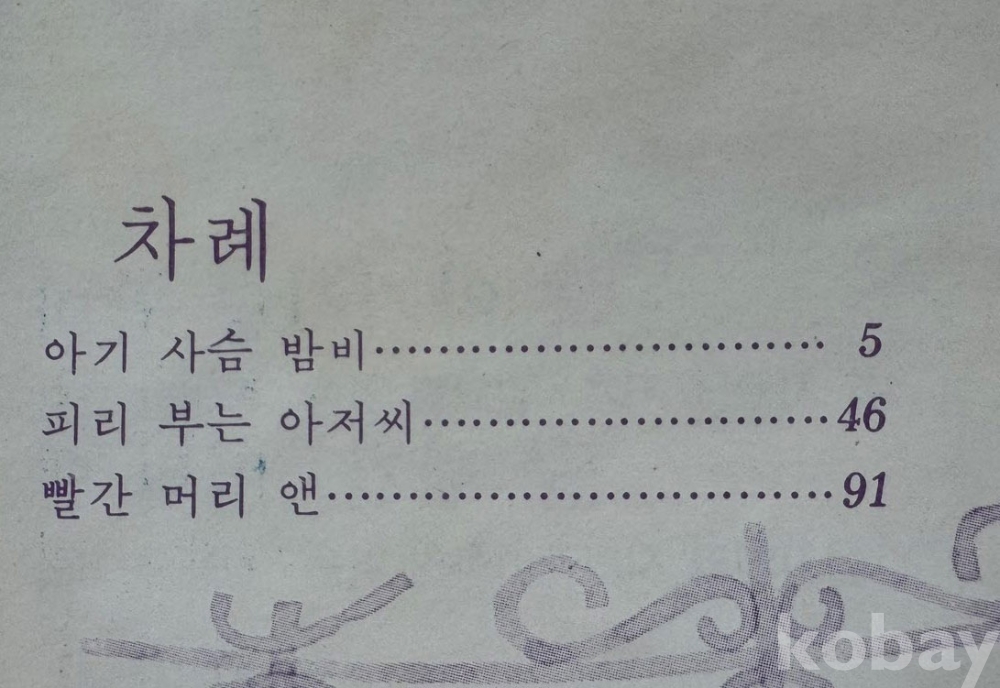 차례
아기 사슴 밤비 ································ 5
피리 부는 아저씨 ····························· 46
빨간 머리 앤 ···································· 91
kobay